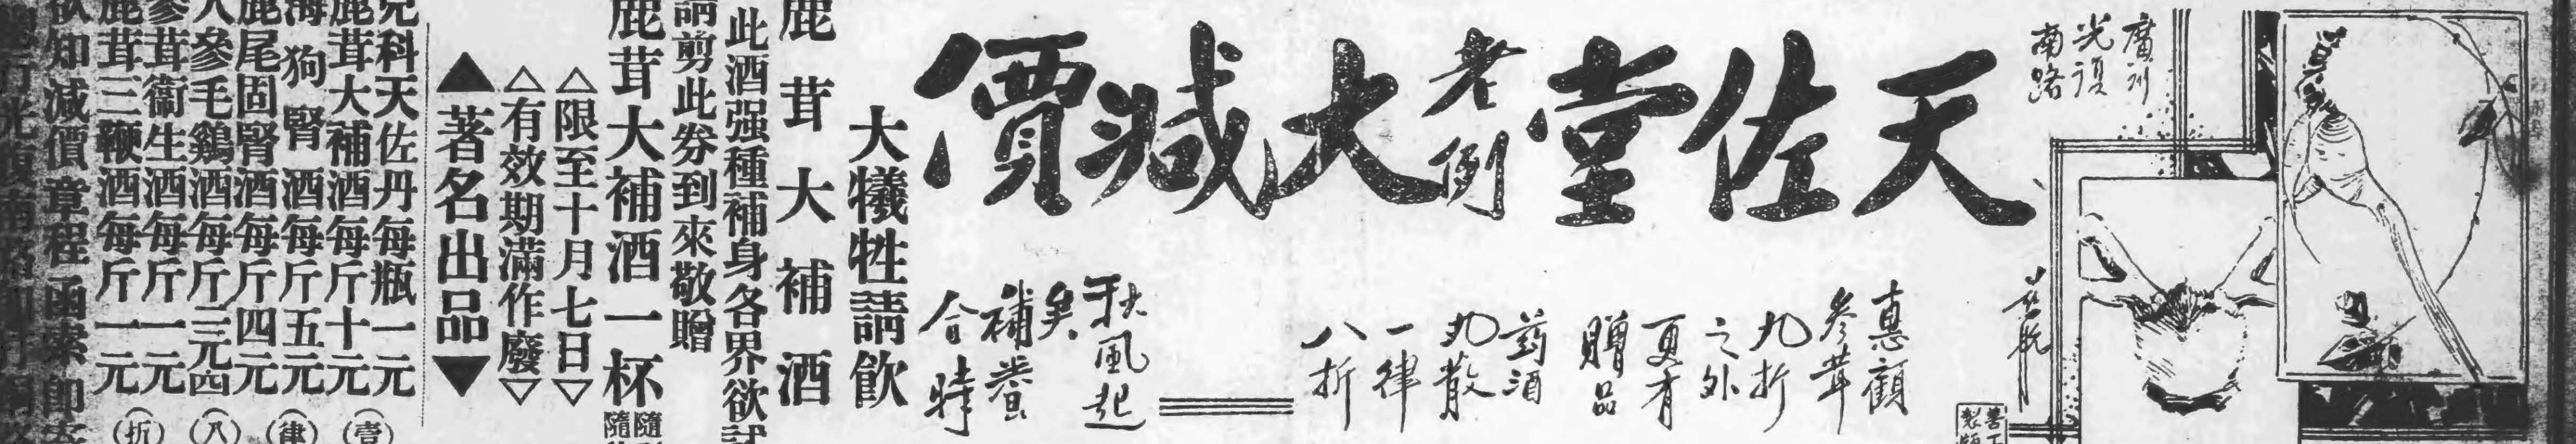 廣州
光復
南路
天佐堂
老例
大減價
惠顧
參茸
九折
之外
更有
贈品
葯酒
丸散
一律
八折
秋風起
矣
補養
合時
大犧牲請飲
鹿茸大補酒
此酒强種補身各界欲試
請剪此券到來敬贈
鹿茸大補酒一杯
△限至十月七日▽
△有效期滿作廢▽
▲著名出品▼
兒科天佐丹每瓶一元
鹿茸大補酒每斤十元
海狗腎酒每斤五元
鹿尾固腎酒每斤四元
人參毛鷄酒每斤三元四
參茸衞生酒每斤一元
鹿茸三鞭酒每斤一元
(壹)(律)(八)(折)
欲知減價章程函索即寄